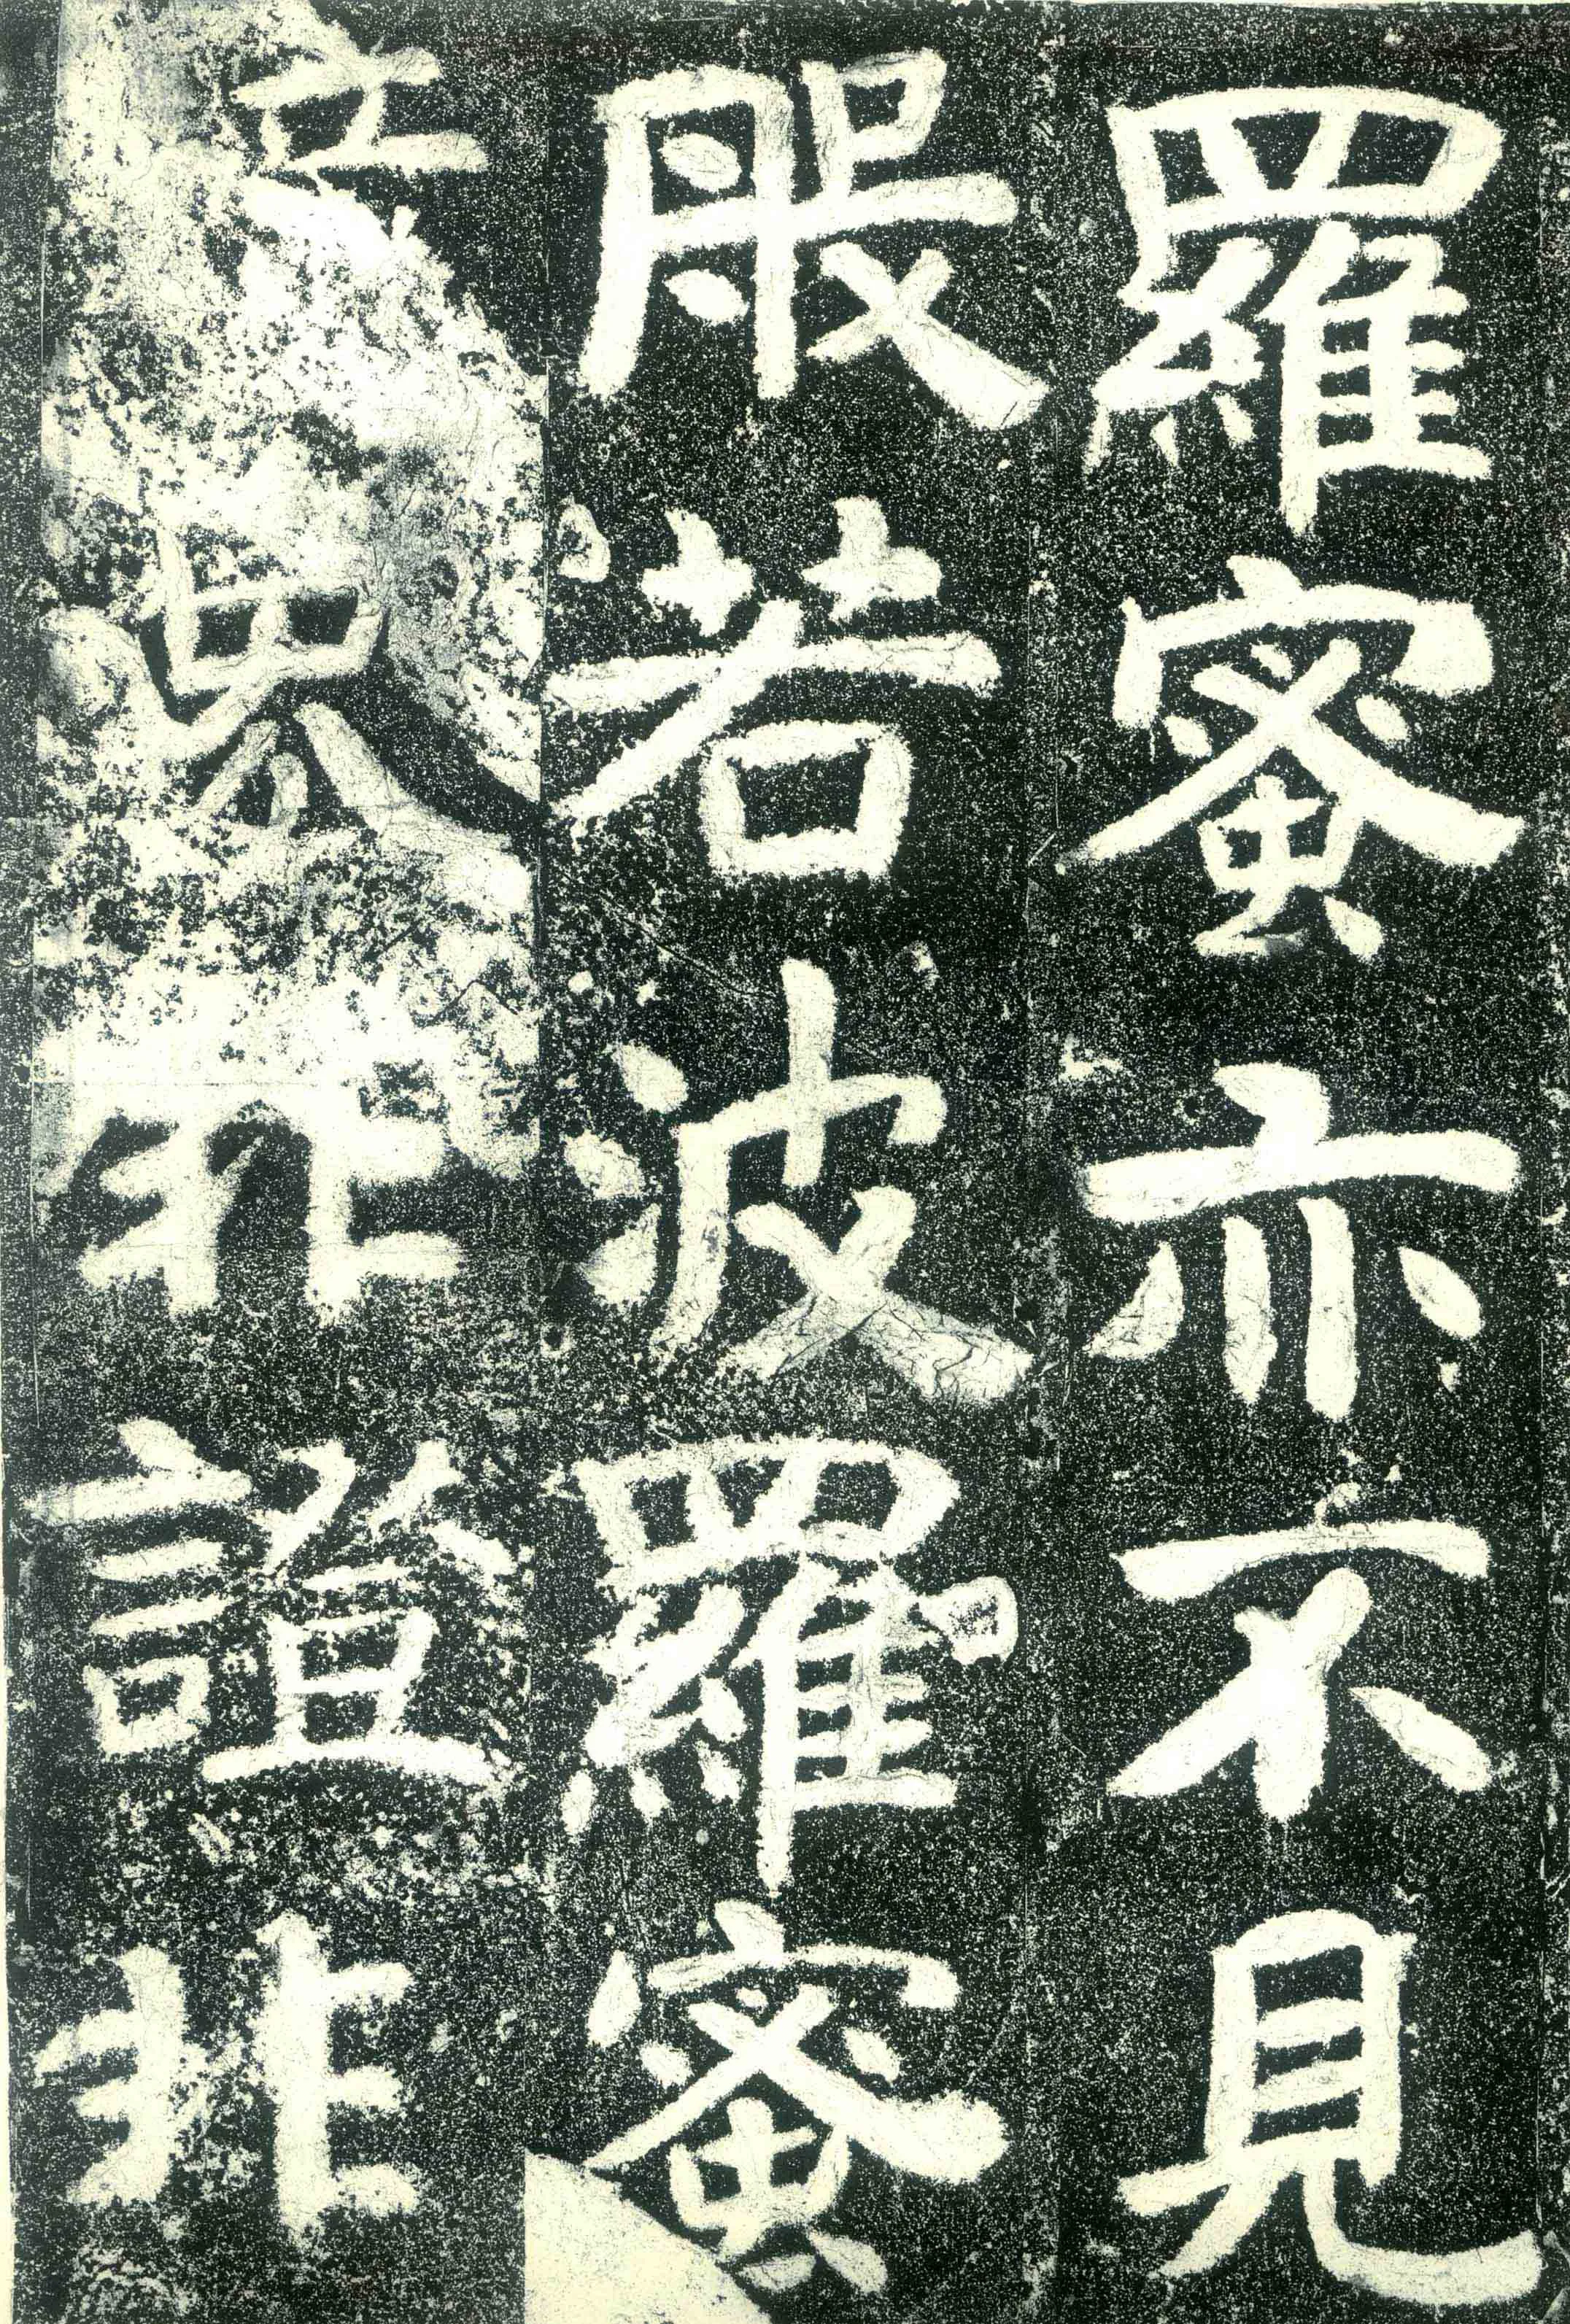 羅蜜亦不見
般若波羅蜜
境界非證非